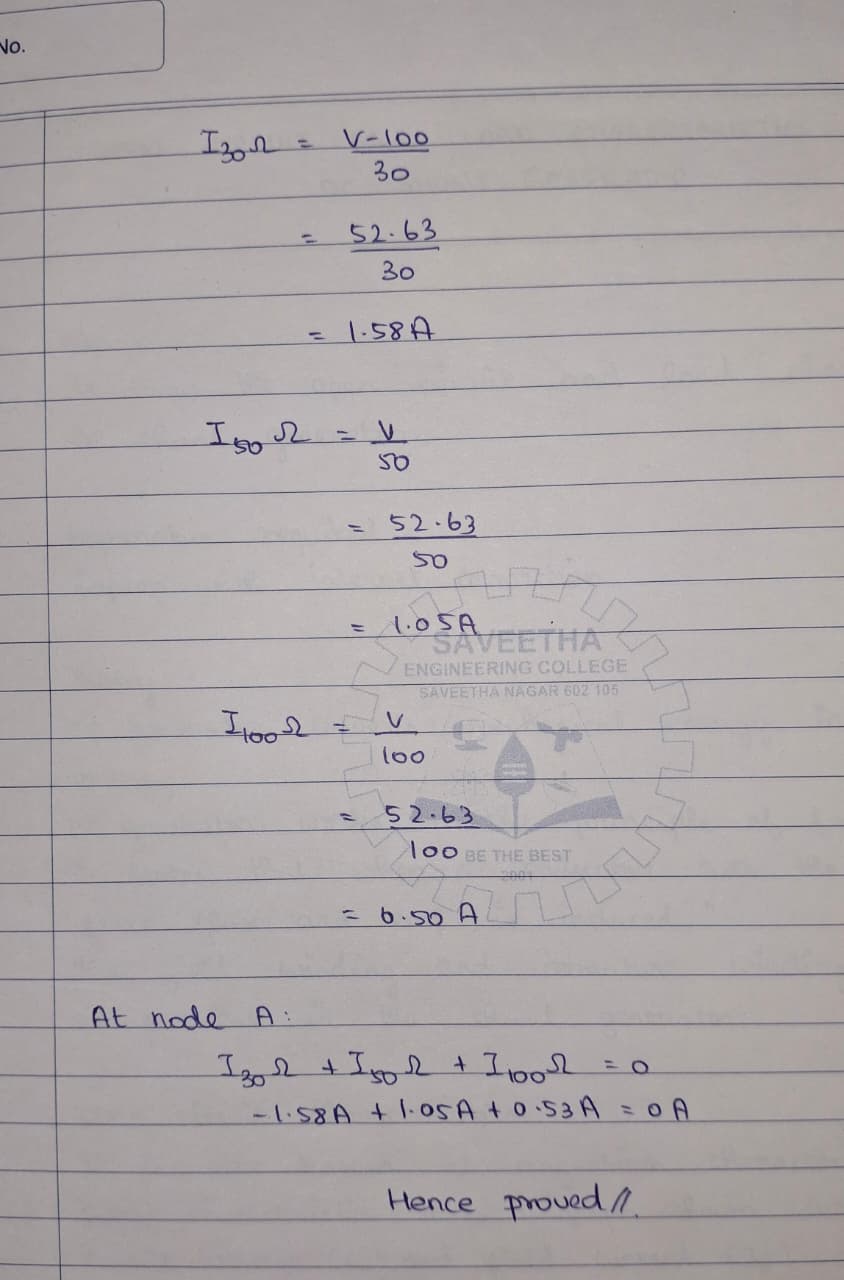 No.
I30Ω = V-100
30
= 52.63
30
= 1.58A
I50 Ω = V
50
= 52.63
50
= 1.05A
SAVEETHA
ENGINEERING COLLEGE
SAVEETHA NAGAR 602 105
I100Ω = V
100
= 52.63
100
BE THE BEST
2001
= 0.50 A
At node A:
I30Ω + I50Ω + I100Ω = 0
-1.58A + 1.05A + 0.53A = 0A
Hence proved //.